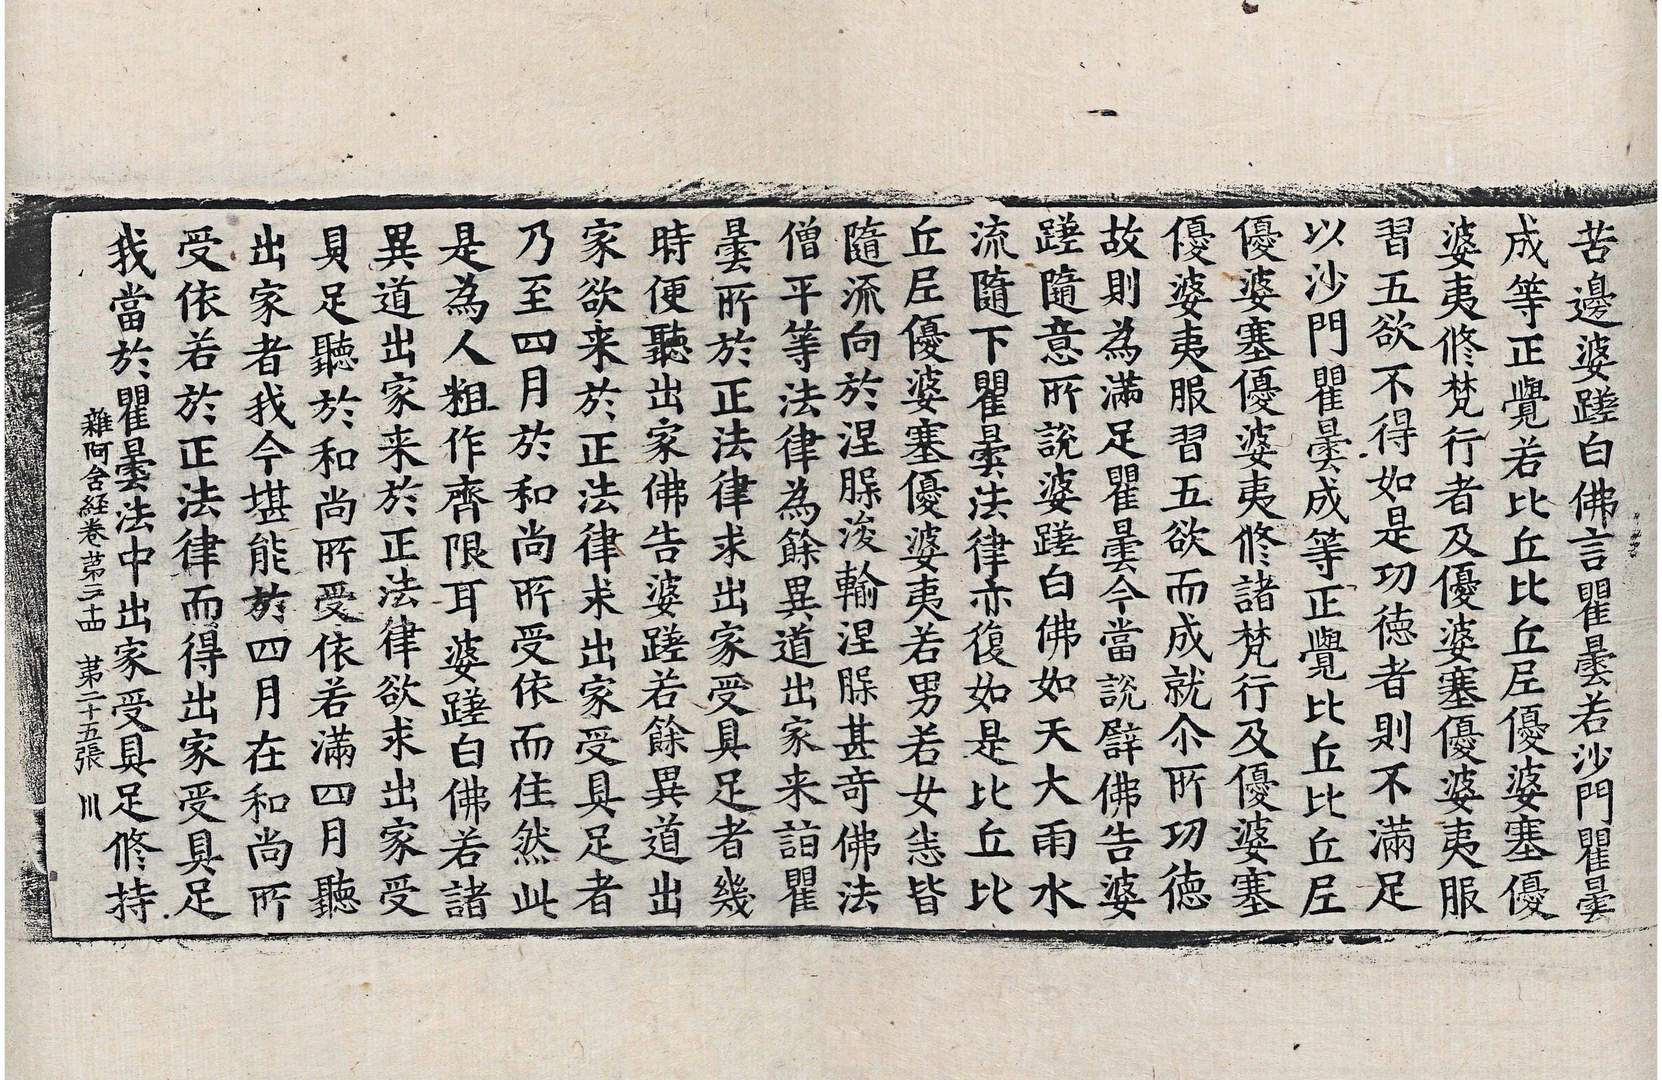 苦邊婆蹉白佛言瞿曇若沙門瞿曇
成等正覺若比丘比丘尼優婆塞優
婆夷修梵行者及優婆塞優婆夷服
習五欲不得如是功德者則不滿足
以沙門瞿曇成等正覺比丘比丘尼
優婆塞優婆夷修諸梵行及優婆塞
優婆夷服習五欲而成就尒所功德
故則為滿足瞿曇今當說譬佛告婆
蹉隨意所說婆蹉白佛如天大雨水
流隨下瞿曇法律亦復如是比丘比
丘尼優婆塞優婆夷若男若女悉皆
隨流向於涅槃浚輸涅槃甚奇佛法
僧平等法律為餘異道出家来詣瞿
曇所於正法律求出家受具足者幾
時便聽出家佛告婆蹉若餘異道出
家欲来於正法律求出家受具足者
乃至四月於和尚所受依而住然此
是為人粗作齊限耳婆蹉白佛若諸
異道出家来於正法律欲求出家受
具足聽於和尚所受依若滿四月聽
出家者我今堪能於四月在和尚所
受依若於正法律而得出家受具足
我當於瞿曇法中出家受具足修持
雜阿含経卷第三十四 第二十五張 川